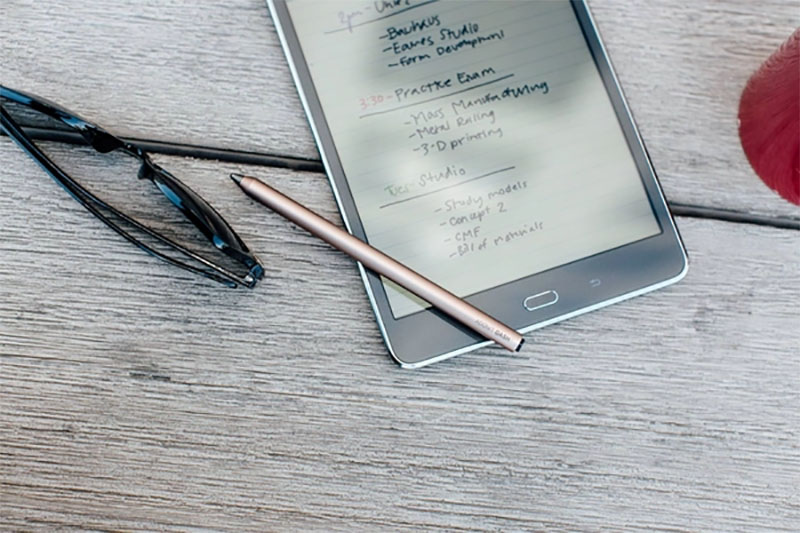 2pm -
- Bauhaus
- Eames Studio
- Form Development
3:30 - Practice Exam
- Mass Manufacturing
- Metal Rolling
- 3-D printing
Tues - Studio
- Study models
- Concept 2
- CMF
- Bill of Materials
ADONIT DASH